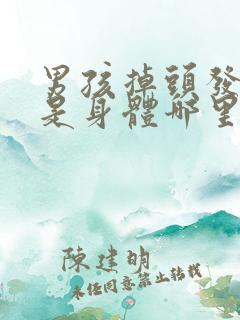 男孩掉頭發
是身體哪里
陳建明
未经同意禁止转载